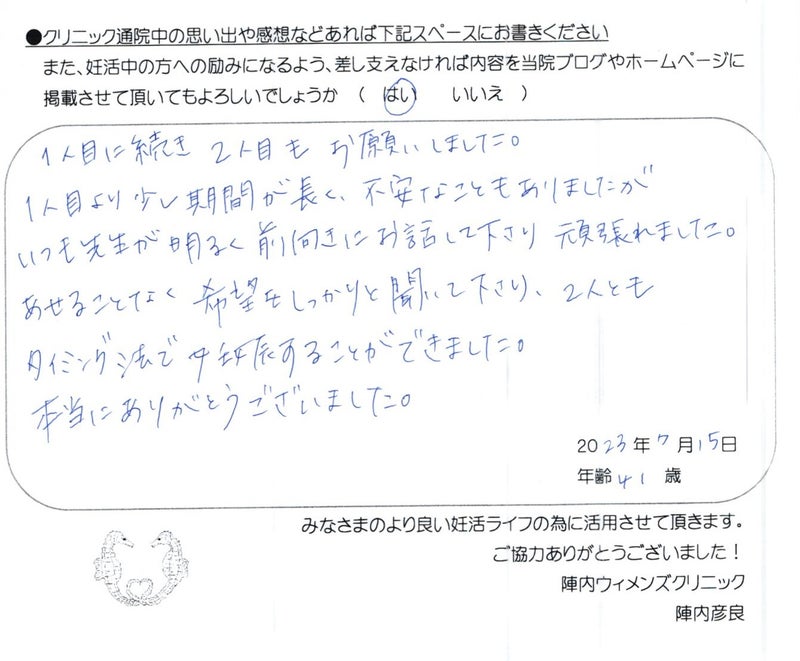 ●クリニック通院中の思い出や感想などあれば下記スペースにお書きください
また、妊活中の方への励みになるよう、差し支えなければ内容を当院ブログやホームページに
掲載させて頂いてもよろしいでしょうか （ はい いいえ ）
1人目に続き 2人目も お願いしました。
1人目より少し期間が長く、不安なこともありましたが
いつも先生が明るく前向きにお話して下さり 頑張れました。
あせることなく 希望をしっかりと聞いて下さり、2人とも
タイミング法で妊娠することができました。
本当にありがとうございました。
2023年7月15日
年齢41歳
みなさまのより良い妊活ライフの為に活用させて頂きます。
ご協力ありがとうございました！
陣内ウィメンズクリニック
陣内彦良